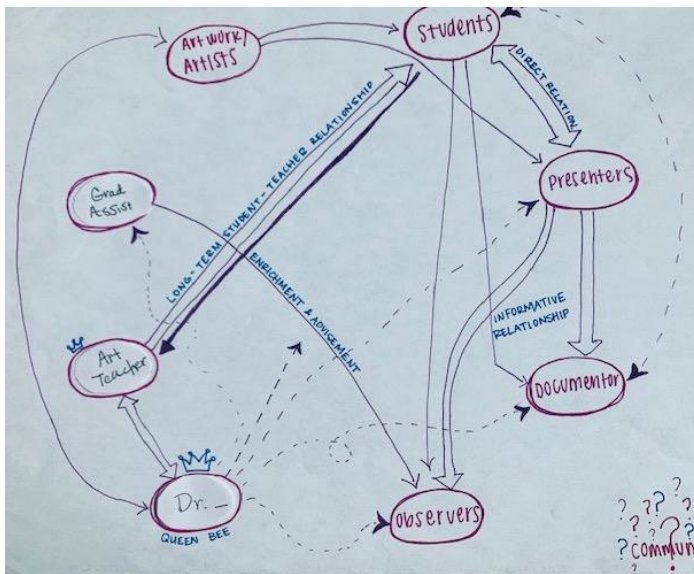 Artwork/
Artists
Students
DIRECT RELATION
Presenters
Grad
Assist
LONG-TERM STUDENT-TEACHER RELATIONSHIP
ENRICHMENT & ADVISEMENT
INFORMATIVE
RELATIONSHIP
Art
Teacher
Documentor
Dr. _
QUEEN BEE
Observers
? ? ? ?
? ? ?
? Commun
? ?